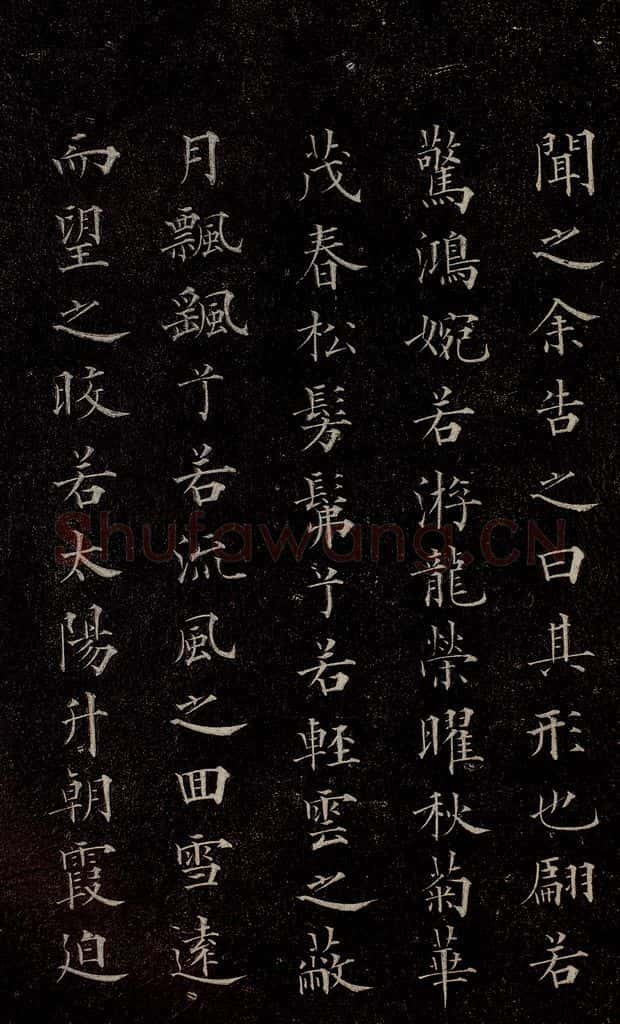 聞之余告之曰其形也翩若
驚鴻婉若游龍榮曜秋菊華
茂春松髣髴兮若輕雲之蔽
月飄颻兮若流風之囬雪遠
而望之晈若太陽升朝霞迫
Shufawang.CN